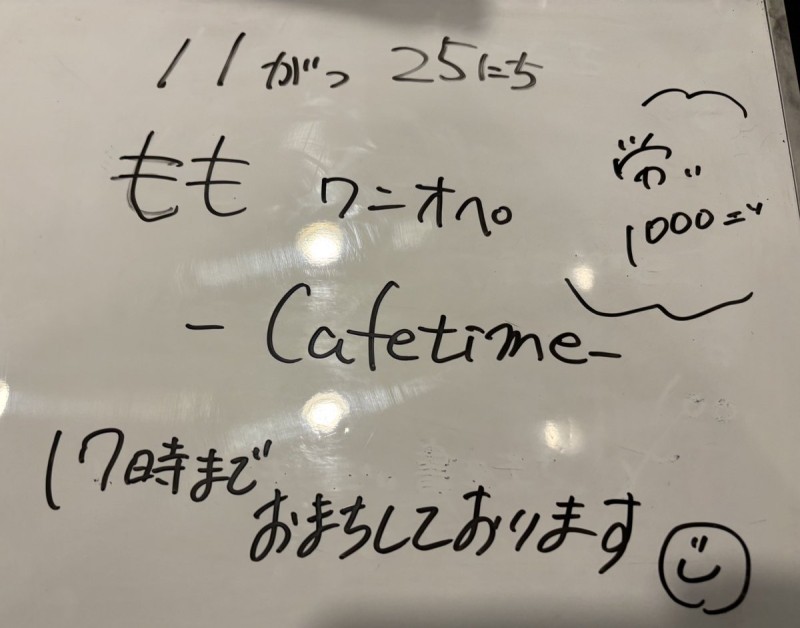 11がつ 25にち
もも ワニオペ。
1000エン
- Cafetime -
17時まで
おまちしております